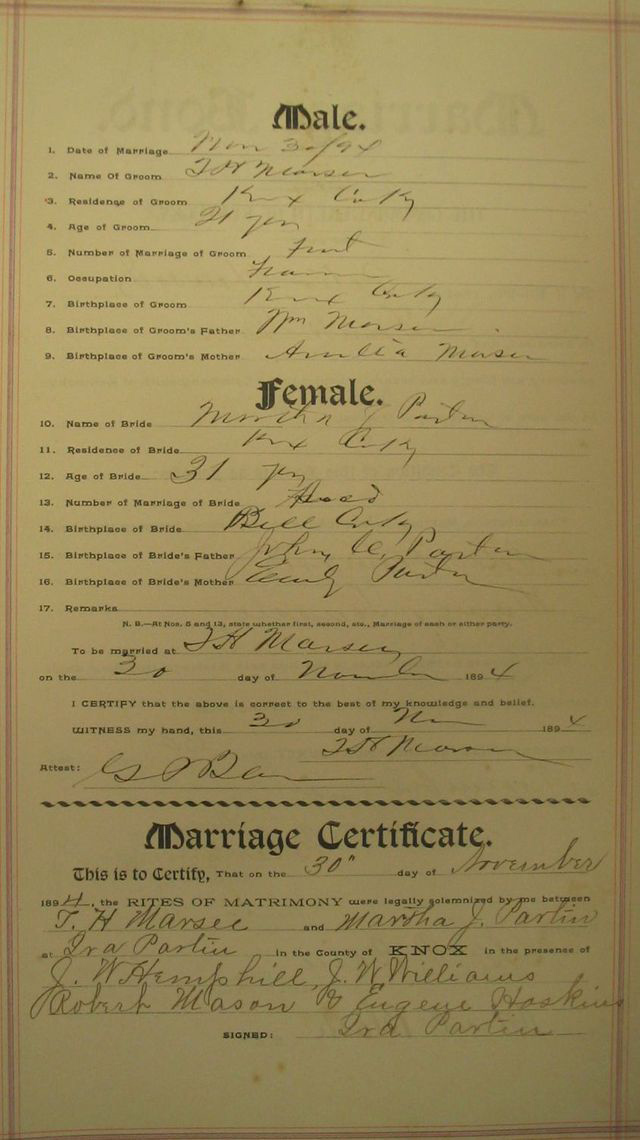 Male.
1. Date of Marriage Nov 30/94
2. Name Of Groom T H Marsee
3. Residence of Groom Knox Co Ky
4. Age of Groom 21 yrs
5. Number of Marriage of Groom First
6. Occupation Farmer
7. Birthplace of Groom Knox Co Ky
8. Birthplace of Groom's Father Wm
9. Birthplace of Groom's Mother
Female.
10. Name of Bride Martha J Partin
11. Residence of Bride Knox Co Ky
12. Age of Bride 31 yrs
13. Number of Marriage of Bride
14. Birthplace of Bride Bell Co Ky
15. Birthplace of Bride's Father John C. Partin
16. Birthplace of Bride's Mother Emily Partin
17. Remarks
N. B.—At Nos. 5 and 13, state whether first, second, etc., Marriage of each or either party.
To be married at T H
on the 30 day of November 1894
I CERTIFY that the above is correct to the best of my knowledge and belief.
WITNESS my hand, this 30 day of Nov 1894
T H
Attest:
Marriage Certificate.
This is to Certify, That on the 30" day of November
1894, the RITES OF MATRIMONY were legally solemnized by me between
T. H Marsee and Martha J. Partin
at Ira Partin in the County of KNOX in the presence of
J. W Hemphill, J. W Williams
Robert Mason & Eugene Hoskins
SIGNED: Ira Partin